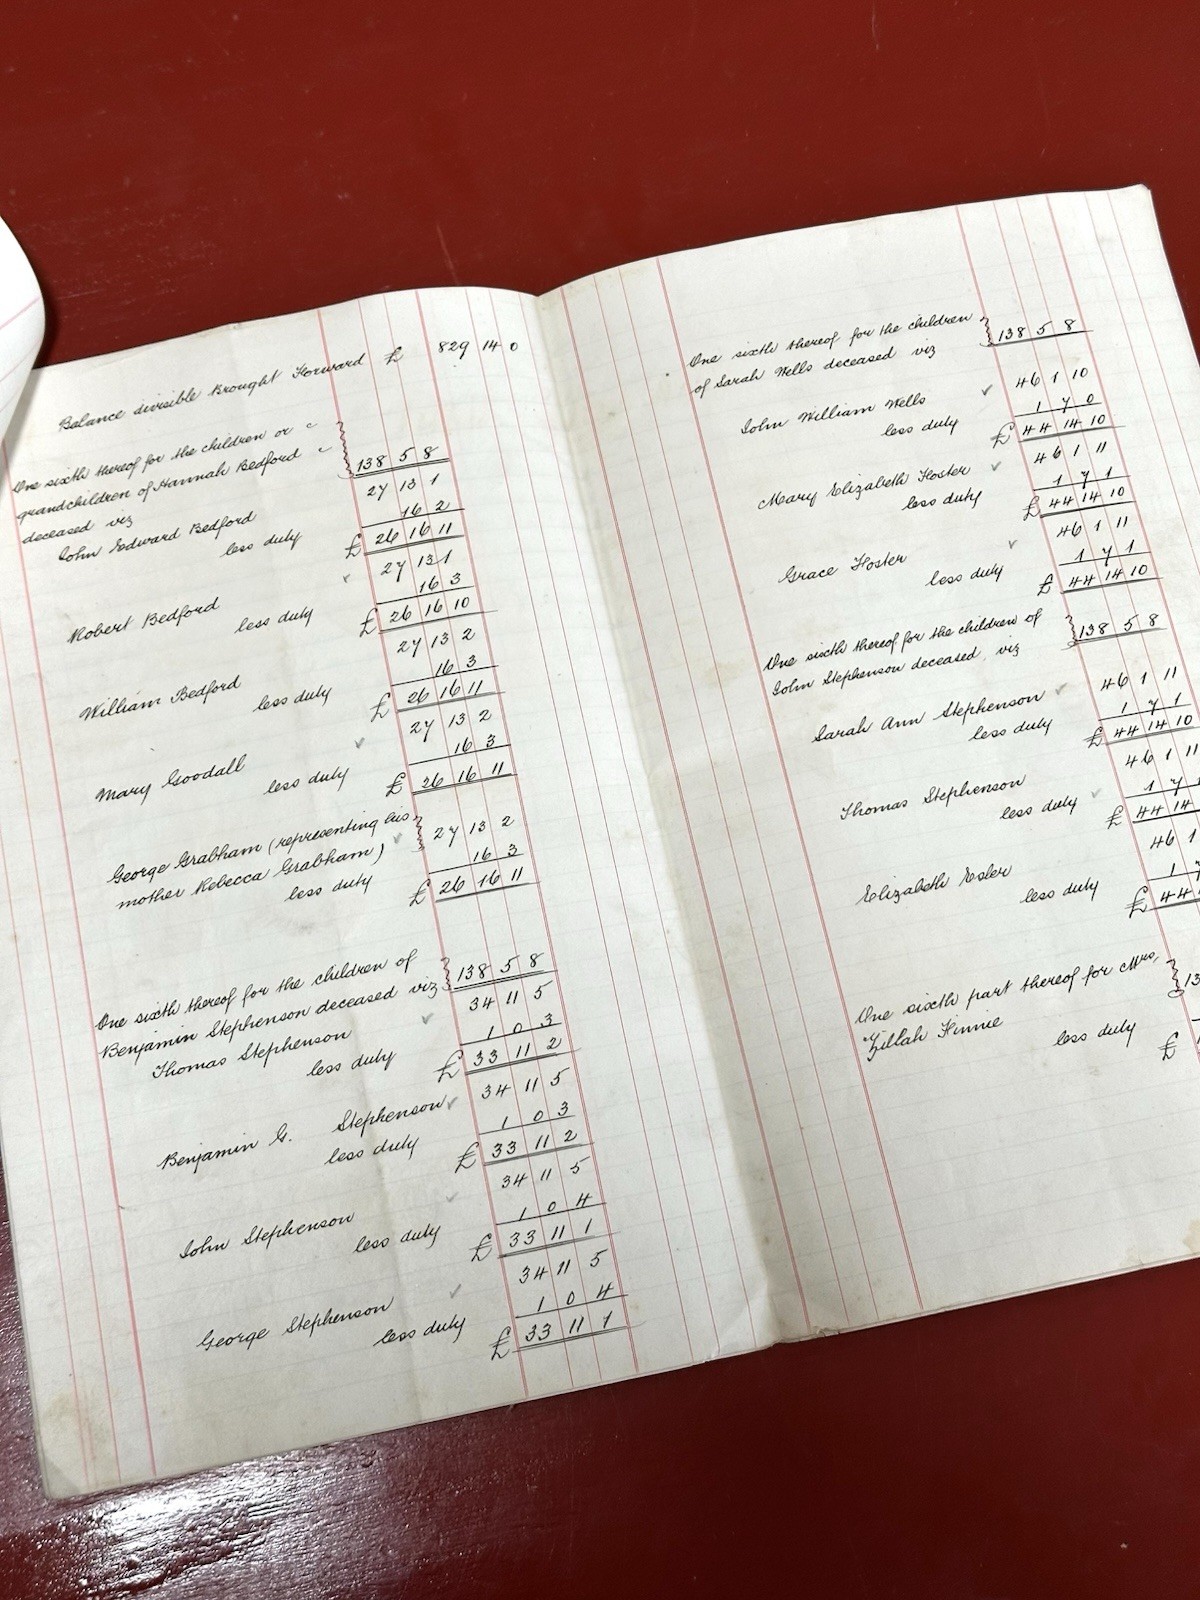 Balance divisible Brought Forward £ 829 14 0
One sixth thereof for the children or
grandchildren of Hannah Bedford
deceased viz 138 5 8
John Edward Bedford 27 13 1
less duty 16 2
£ 26 16 11
Robert Bedford 27 13 1
less duty 16 3
£ 26 16 10
William Bedford 27 13 2
less duty 16 3
£ 26 16 11
Mary Goodall 27 13 2
less duty 16 3
£ 26 16 11
George Grabham (representing his
mother Rebecca Grabham) 27 13 2
less duty 16 3
£ 26 16 11
One sixth thereof for the children of
Benjamin Stephenson deceased viz 138 5 8
Thomas Stephenson 34 11 5
less duty 1 0 3
£ 33 11 2
Benjamin G. Stephenson 34 11 5
less duty 1 0 3
£ 33 11 2
John Stephenson 34 11 5
less duty 1 0 4
£ 33 11 1
George Stephenson 34 11 5
less duty 1 0 4
£ 33 11 1
One sixth thereof for the children
of Sarah Wells deceased viz 138 5 8
John William Wells 46 1 10
less duty 1 7 0
£ 44 14 10
Mary Elizabeth Foster 46 1 11
less duty 1 7 1
£ 44 14 10
Grace Foster 46 1 11
less duty 1 7 1
£ 44 14 10
One sixth thereof for the children of
John Stephenson deceased, viz 138 5 8
Sarah Ann Stephenson 46 1 11
less duty 1 7 1
£ 44 14 10
Thomas Stephenson 46 1 11
less duty 1 7
£ 44 14
Elizabeth Esler 46 1
less duty 1 7
£ 44
One sixth part thereof for Mrs.
Zillah Finnie 13
less duty
£ 1